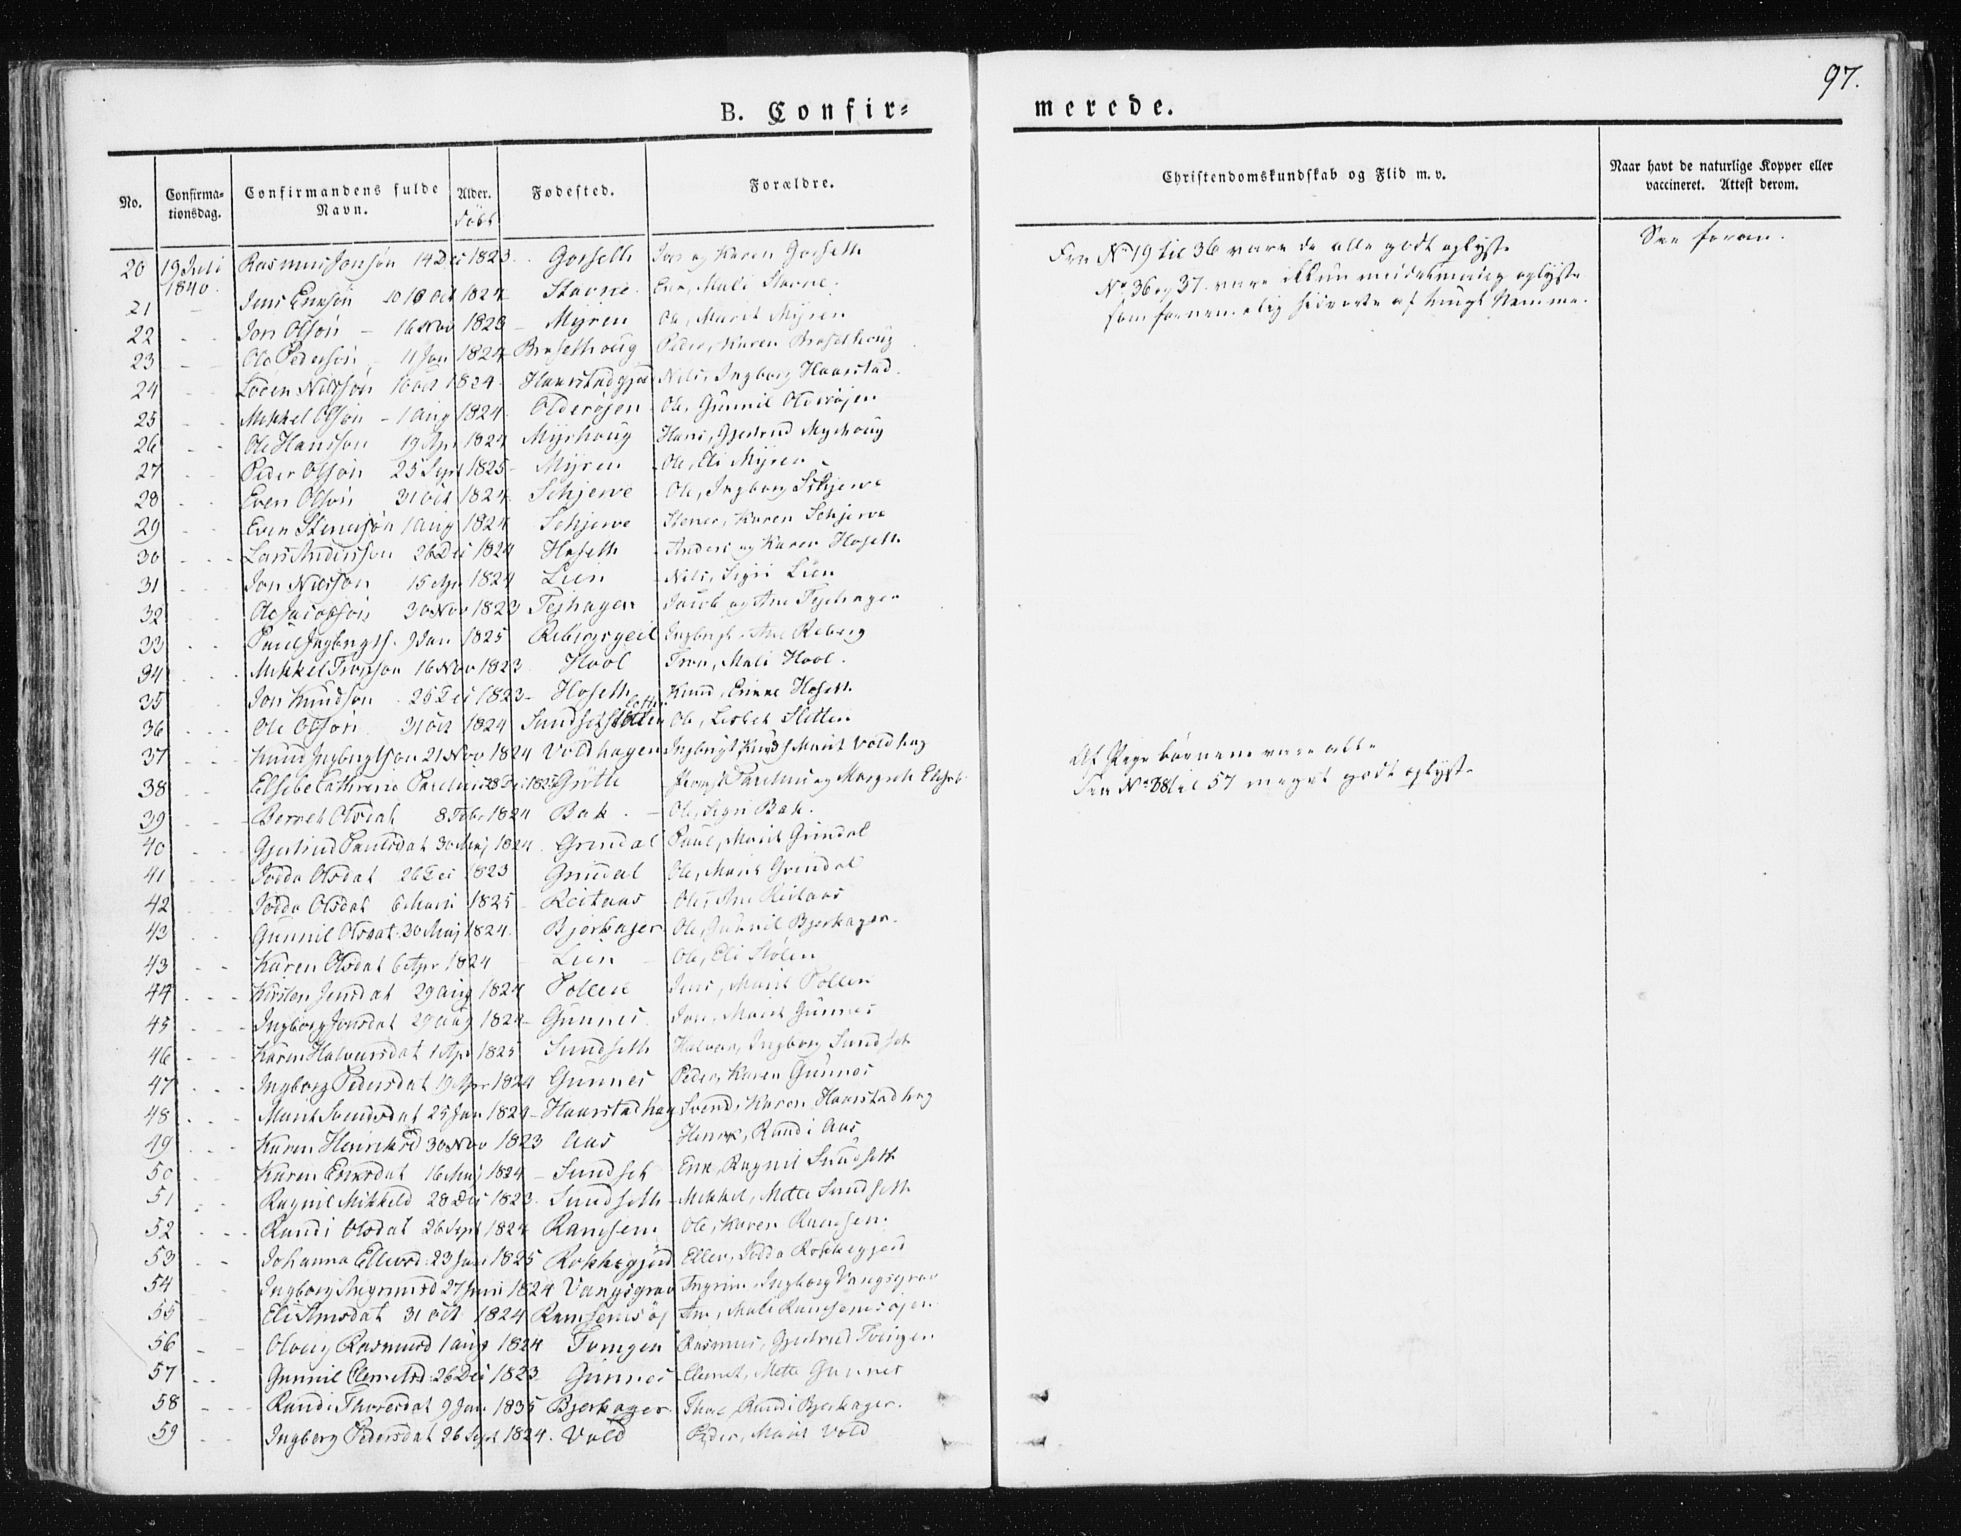 97.
B. Confir-
merede.
No. Confirmationsdag. Confirmandens fulde Navn. Alder. døbt Fødested. Forældre. Christendomskundskab og Flid m. v. Naar havt de naturlige Kopper eller vaccineret. Attest derom.
20 19 Juli 1840. Rasmus Jonsøn 14 Dec 1823. Gorseth Jon og Karen Gorseth
21 - Jens Ericsøn 10 Oct 1824 Stavne Eric, Mali Stavne.
22 - - Jon Olsøn - 16 Nov 1823 - Myren Ole, Marit Myren
23 - - Ole Pedersøn - 11 Jan 1824 - Brusethoug Peder, Karen Brusethoug
24 - - Søren Nilssøn 10 Oct 1824. Haarstad Nils, Ingborg Haarstad.
25 - - Mikkel Olsøn - 1 Aug 1824. Olderøjen Ole, Gunnil Olderøjen
26 - - Ole Hanssøn 19 Apr 1824 Myrhoug Hans, Gjertrud Myrhoug
27 - - Peder Olsøn 25 Sept 1825 - Myren Ole, Eli Myren
28 - - Even Olsøn 31 Oct 1824 - Schjerve Ole, Ingborg Schjerve
29 - - Even Stenersøn 1 Aug 1824 Schjerve Stener, Karen Schjerve
30 - - - Lars Anderssøn 26 Dec 1824 Hoseth Anders og Karen Hoseth
31 - - - Jon Nilssøn 15 Apr 1824 Lien Nils, Sigri Lien
32 - - - Ole Jacobsøn 30 Nov 1823 Tejhagen Jacob og Ane Tejhagen
33 - - - Paul Ingbrigts. 9 Jan 1825 Rebergsgeil Ingbrigt, Ane Reberg
34 - - - Mikkel Tronsøn 16 Nov 1823. Hool Tron, Mali Hool.
35 - - - Jon Knudsøn 25 Dec 1823 - Hoseth Knud, Hoseth
36 - - - Ole Olsøn 31 Oct 1824 Ole, Lisbet Sletten
37 - - - Knud Ingbrigtsøn 21 Nov 1824 Voldhagen Ingbrigt Marit Voldhag
38 - - - Elsebe Cathrine Grøtte Margrete Elisab
39 - - - Berret Olsdat 8 Febr 1824 Bak. - Ole, Sigri Bak.
40 - - - Gjertrud Paulsdat 30 Maj 1824. Grindal Paul, Marit Grindal
41 - - - Jodda Olsdat 26 Dec 1823 Grindal Ole, Marit Grindal
42 - - - Jodda Olsdat 6 Marti 1825 - Reitaas Ole, Ane Reitaas
43 - - Gunnil Olsdat 30 Maj 1824. Bjerkager Ole, Gunnil Bjerkager.
43 - - - Karen Olsdat 6 Apr 1824 - Lien - Ole, Eli Stølen
44 - - - Kirsten Jensdat 29 Aug 1824 Pollen Jens, Marit Pollen
45 - - - Ingborg Jonsdat 29 Aug 1824 - Gunnes Jon, Marit Gunnes
46 - - - Karen Halvorsdat 1 Apr 1825 Sundseth Halvor, Ingborg Sundset
47 - - - Ingborg Pedersdat 19 Apr 1824 Gunnes Peder, Karen Gunnes
48 - - - Marit Svendsdat 25 Jan 1824 - Haarstadhag Svend, Karen Haarstadhag
49 - - - Karen Henriksd 30 Nov 1823 Aas Henrik, Randi Aas
50 - - Karen Ericsdat 16 Maj 1824 - Sundset Eric, Ragnil Sundseth
51 - - Ragnil Mikkelsd 28 Dec 1823. Sundseth Mikkel, Mette Sundseth
52 - - - Randi Olsdat 26 Sept 1824 Ramsem Ole, Karen Ramsem
53 - - Johanna Ellevsd. 23 Jan 1825 Rokkegjerd Ellev, Jodda Rokkegjerd
54 - - Ingborg Ingrimsd 27 Juni 1824 Vangsgrav Ingrim, Ingborg Vangsgrav
55 - Eli Arnsdat 31 Oct 1824 Ramsemsøj Arn, Mali Ramsemsøjen
56 - - Olvig Rasmusd 1 Aug 1824 Tvingen Rasmus, Gjertrud Tvingen
57 - - Gunnil Clemetsd 26 Dec 1823 Gunnes Clemet, Mette Gunnes
58 - - - Randi Thoresdat 9 Jan 1835 Bjerkager Thore, Randi Bjerkager.
59 - - Ingborg Pedersdat 26 Sept 1824. Vold Peder, Marit Vold
Fra No 19 til 36 vare de alle godt oplyst
No 36 og 37. vare ikkun middelmaadig oplyste
som fornemelig hidrørte af tungt Nemme.
See foran.
Af Pigebørnene vare alle
fra No 38 til 57 meget godt oplyst